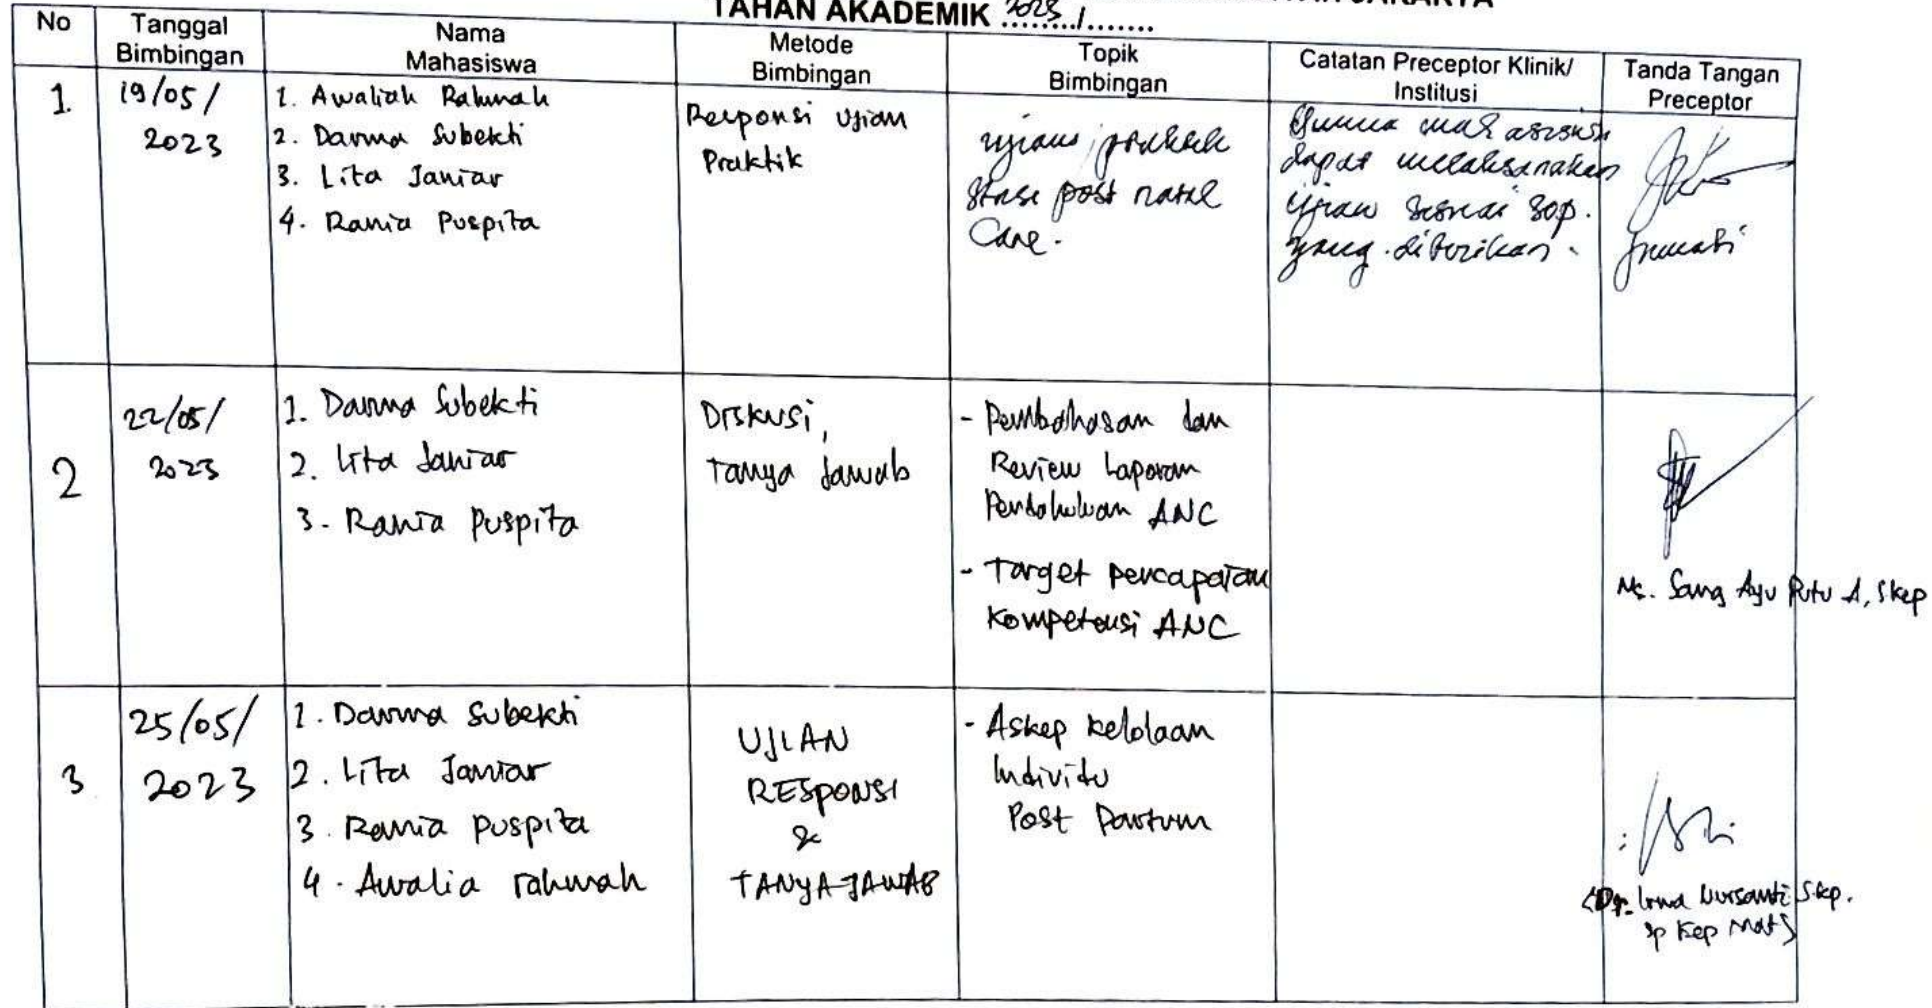 TAHAN AKADEMIK 2023/........
No
Tanggal
Bimbingan
Nama
Mahasiswa
Metode
Bimbingan
Topik
Bimbingan
Catatan Preceptor Klinik/
Institusi
Tanda Tangan
Preceptor
1.
19/05/
2023
1. Awaliah Rahmah
2. Darma Subekti
3. Lita Janiar
4. Rania Puspita
Responsi Ujian
Praktik
ujian praktek
stase post natal
Care.
Semua mahasiswa
dapat melaksanakan
ujian sesuai sop.
yang diberikan.
2
22/05/
2023
1. Darma Subekti
2. Lita Janiar
3. Rania Puspita
Diskusi,
Tanya Jawab
- Pembahasan dan
Review Laporan
Pendahuluan ANC
- Target pencapaian
Kompetensi ANC
Ns. Sang Ayu Putu A, Skep
3
25/05/
2023
1. Darma Subekti
2. Lita Janiar
3. Rania puspita
4. Awalia rahmah
UJIAN
RESPONSI
&
TANYA JAWAB
- Askep kelolaan
Individu
Post Partum
(Dr. Irna Nursanti Skep.
Sp Kep Mat)